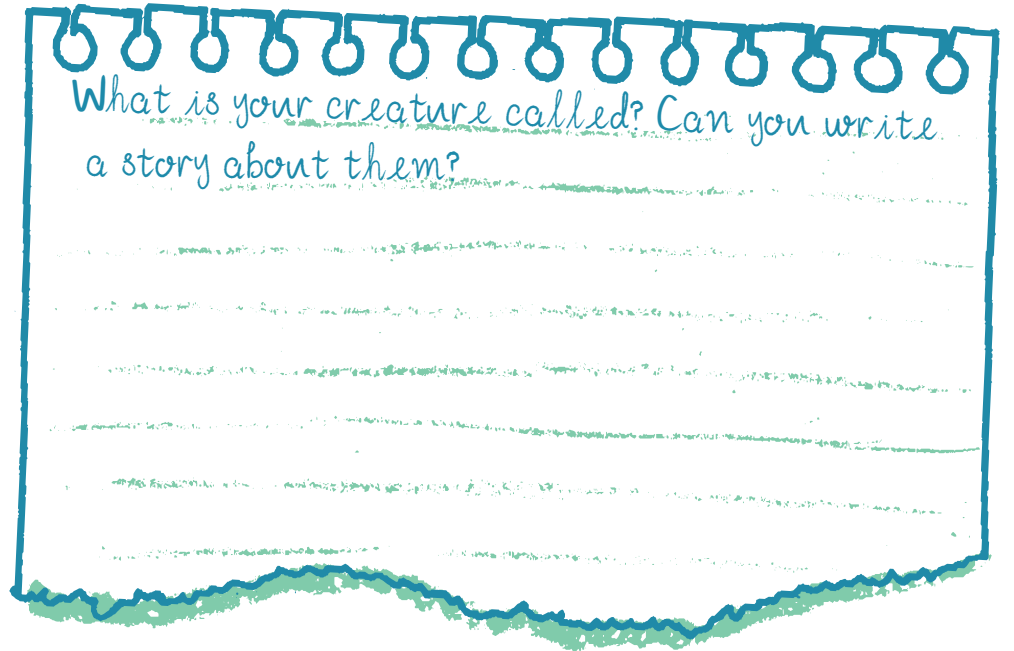 What is your creature called? Can you write
a story about them?